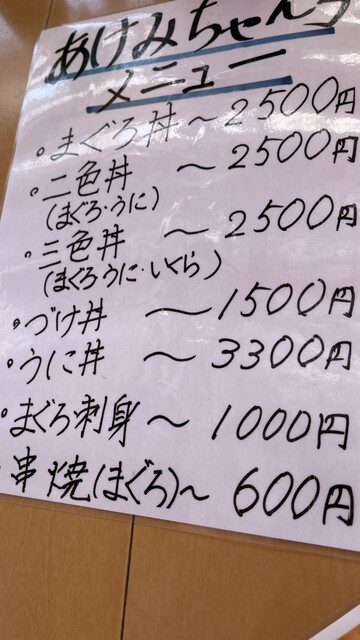 あけみちゃん
メニュー
。まぐろ丼～2500円
。二色丼 ～2500円
(まぐろ・うに)
。三色丼 ～2500円
(まぐろうに・いくら)
。づけ丼 ～1500円
。うに丼 ～3300円
。まぐろ刺身～1000円
。串焼(まぐろ)～600円